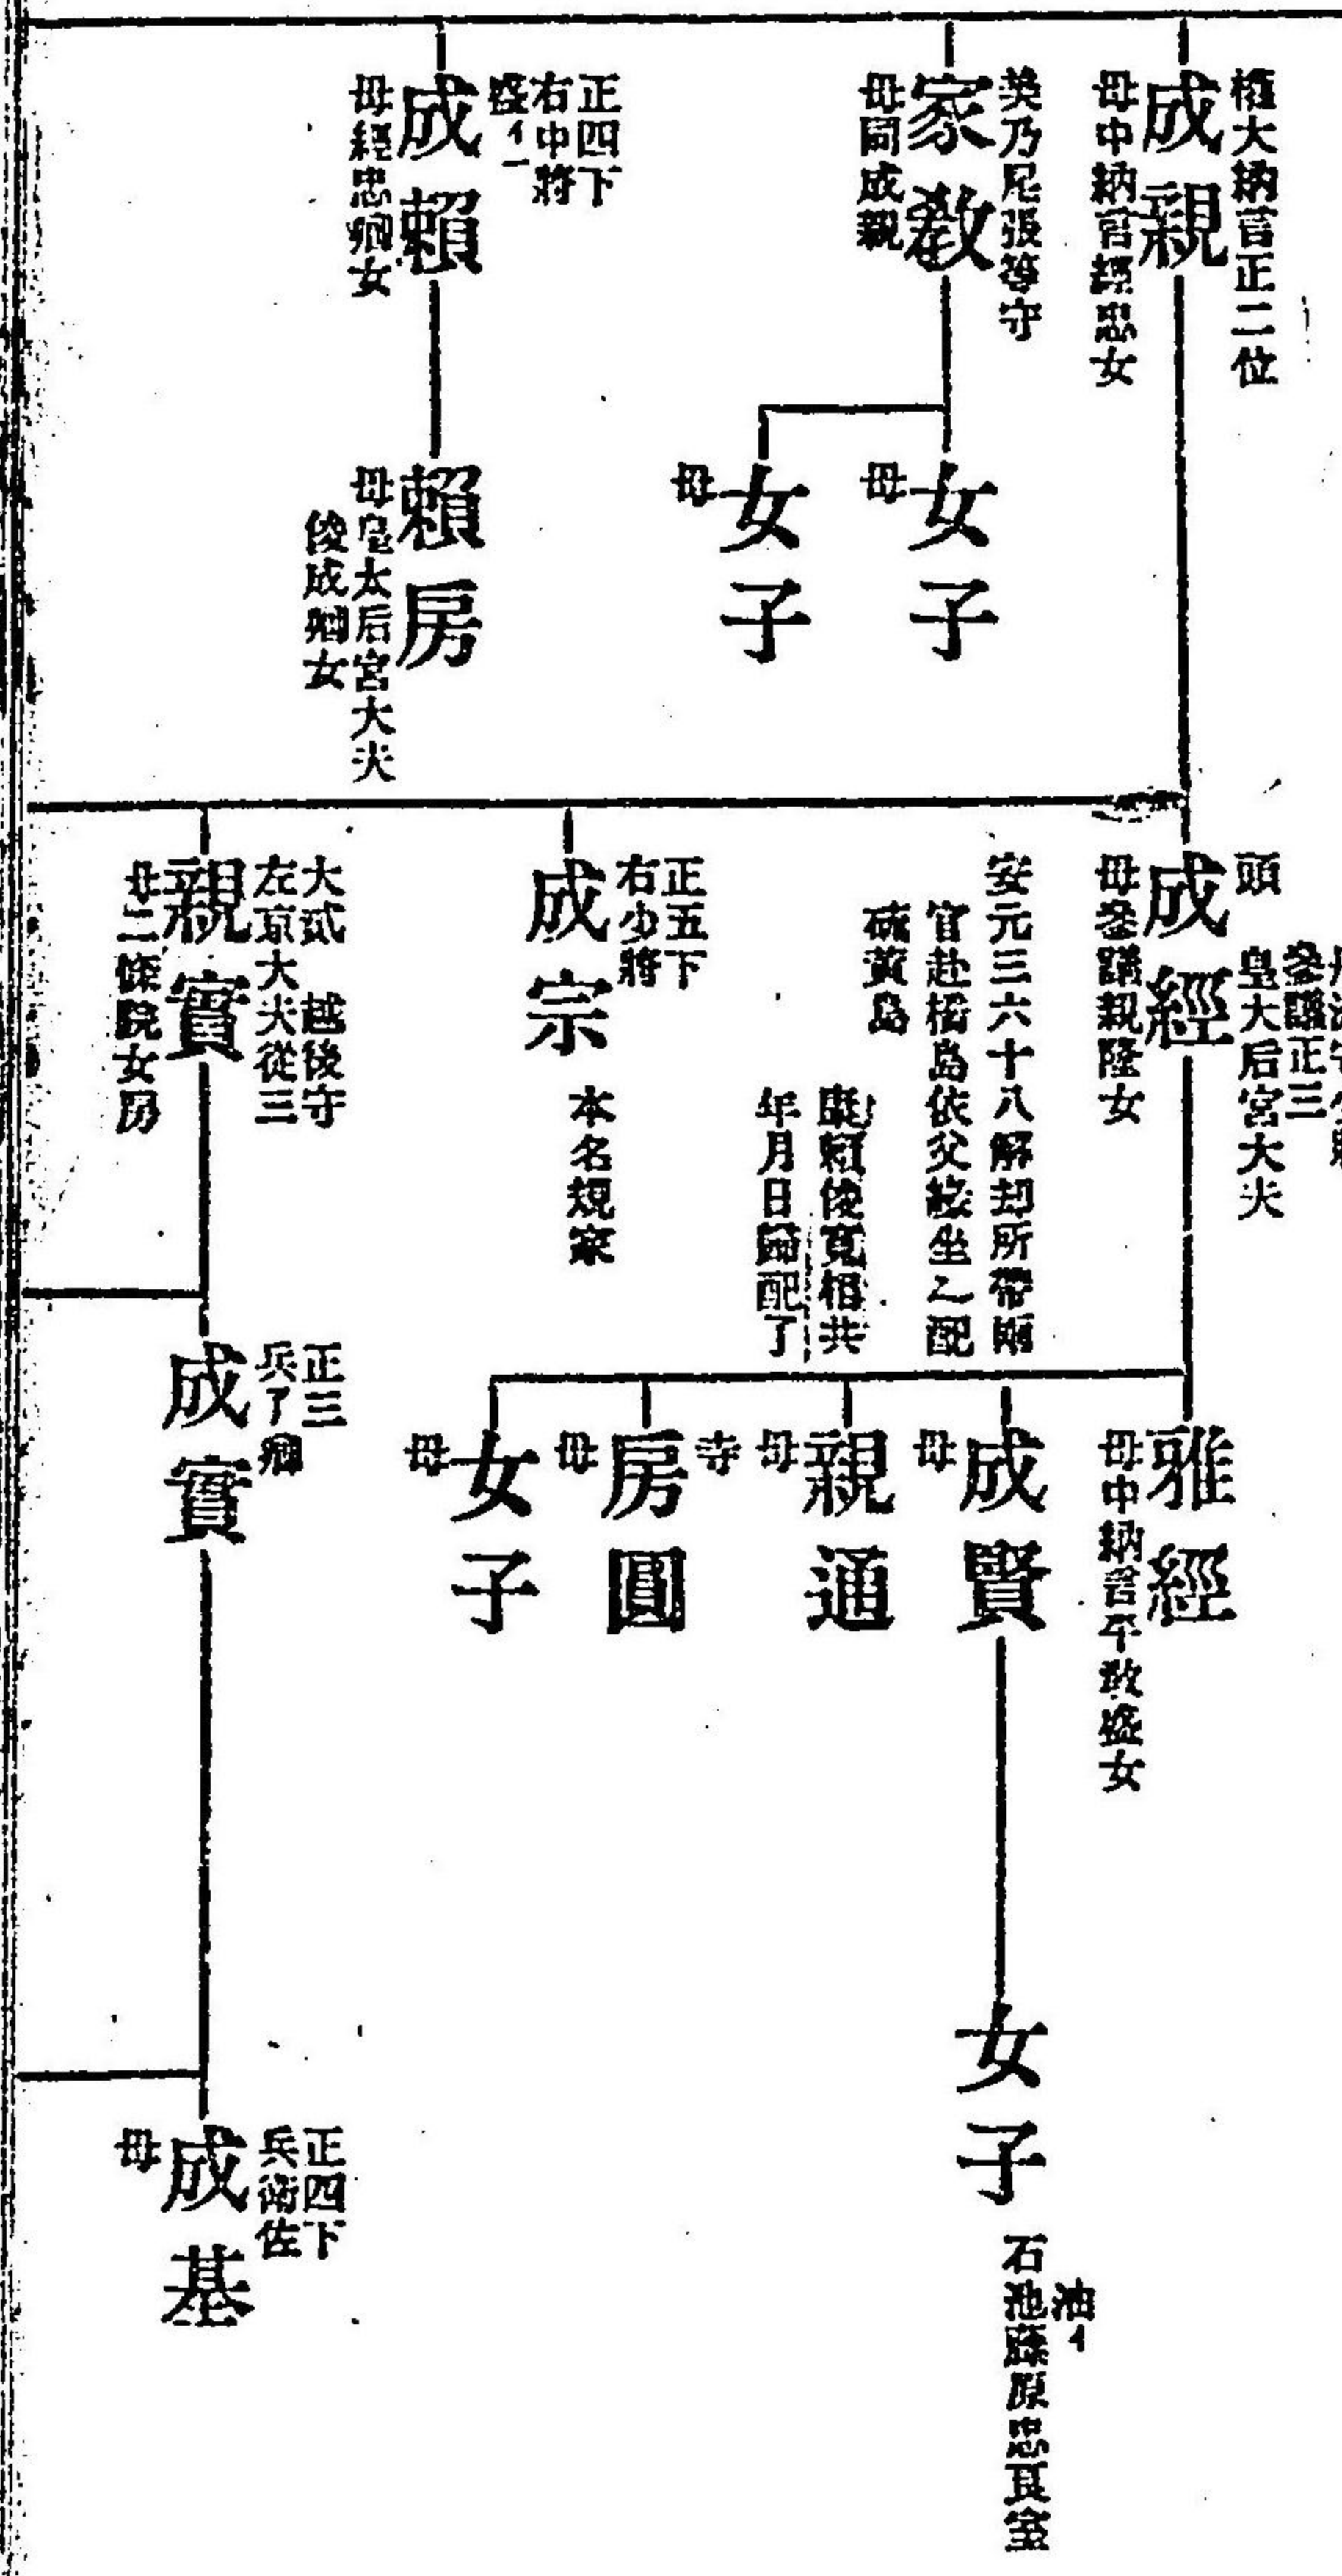 權大納言正二位
成親
母中納言經忠女
美乃尾張等守
家敎
母同成親
女子
母
女子
母
正四下
右中將
盛イ一
成賴
母經忠卿女
賴房
母皇太后宮大夫
俊成卿女
參議正三
皇大后宮大夫
頭
成經
母參議親隆女
安元三六十八解却所帶兩
官赴
島依父緣坐之配
硫黃島
康賴俊寬相共
年月日
配了
雅經
母中納言平敎盛女
成賢
母
女子
油イ
石池藤原忠良室
親通
母
寺
房圓
母
女子
母
正五下
右少將
成宗
本名親家
大貳　越後守
左京大夫從三
親實
母二條院女房
正三
兵了卿
成實
正四下
兵衞佐
成基
母